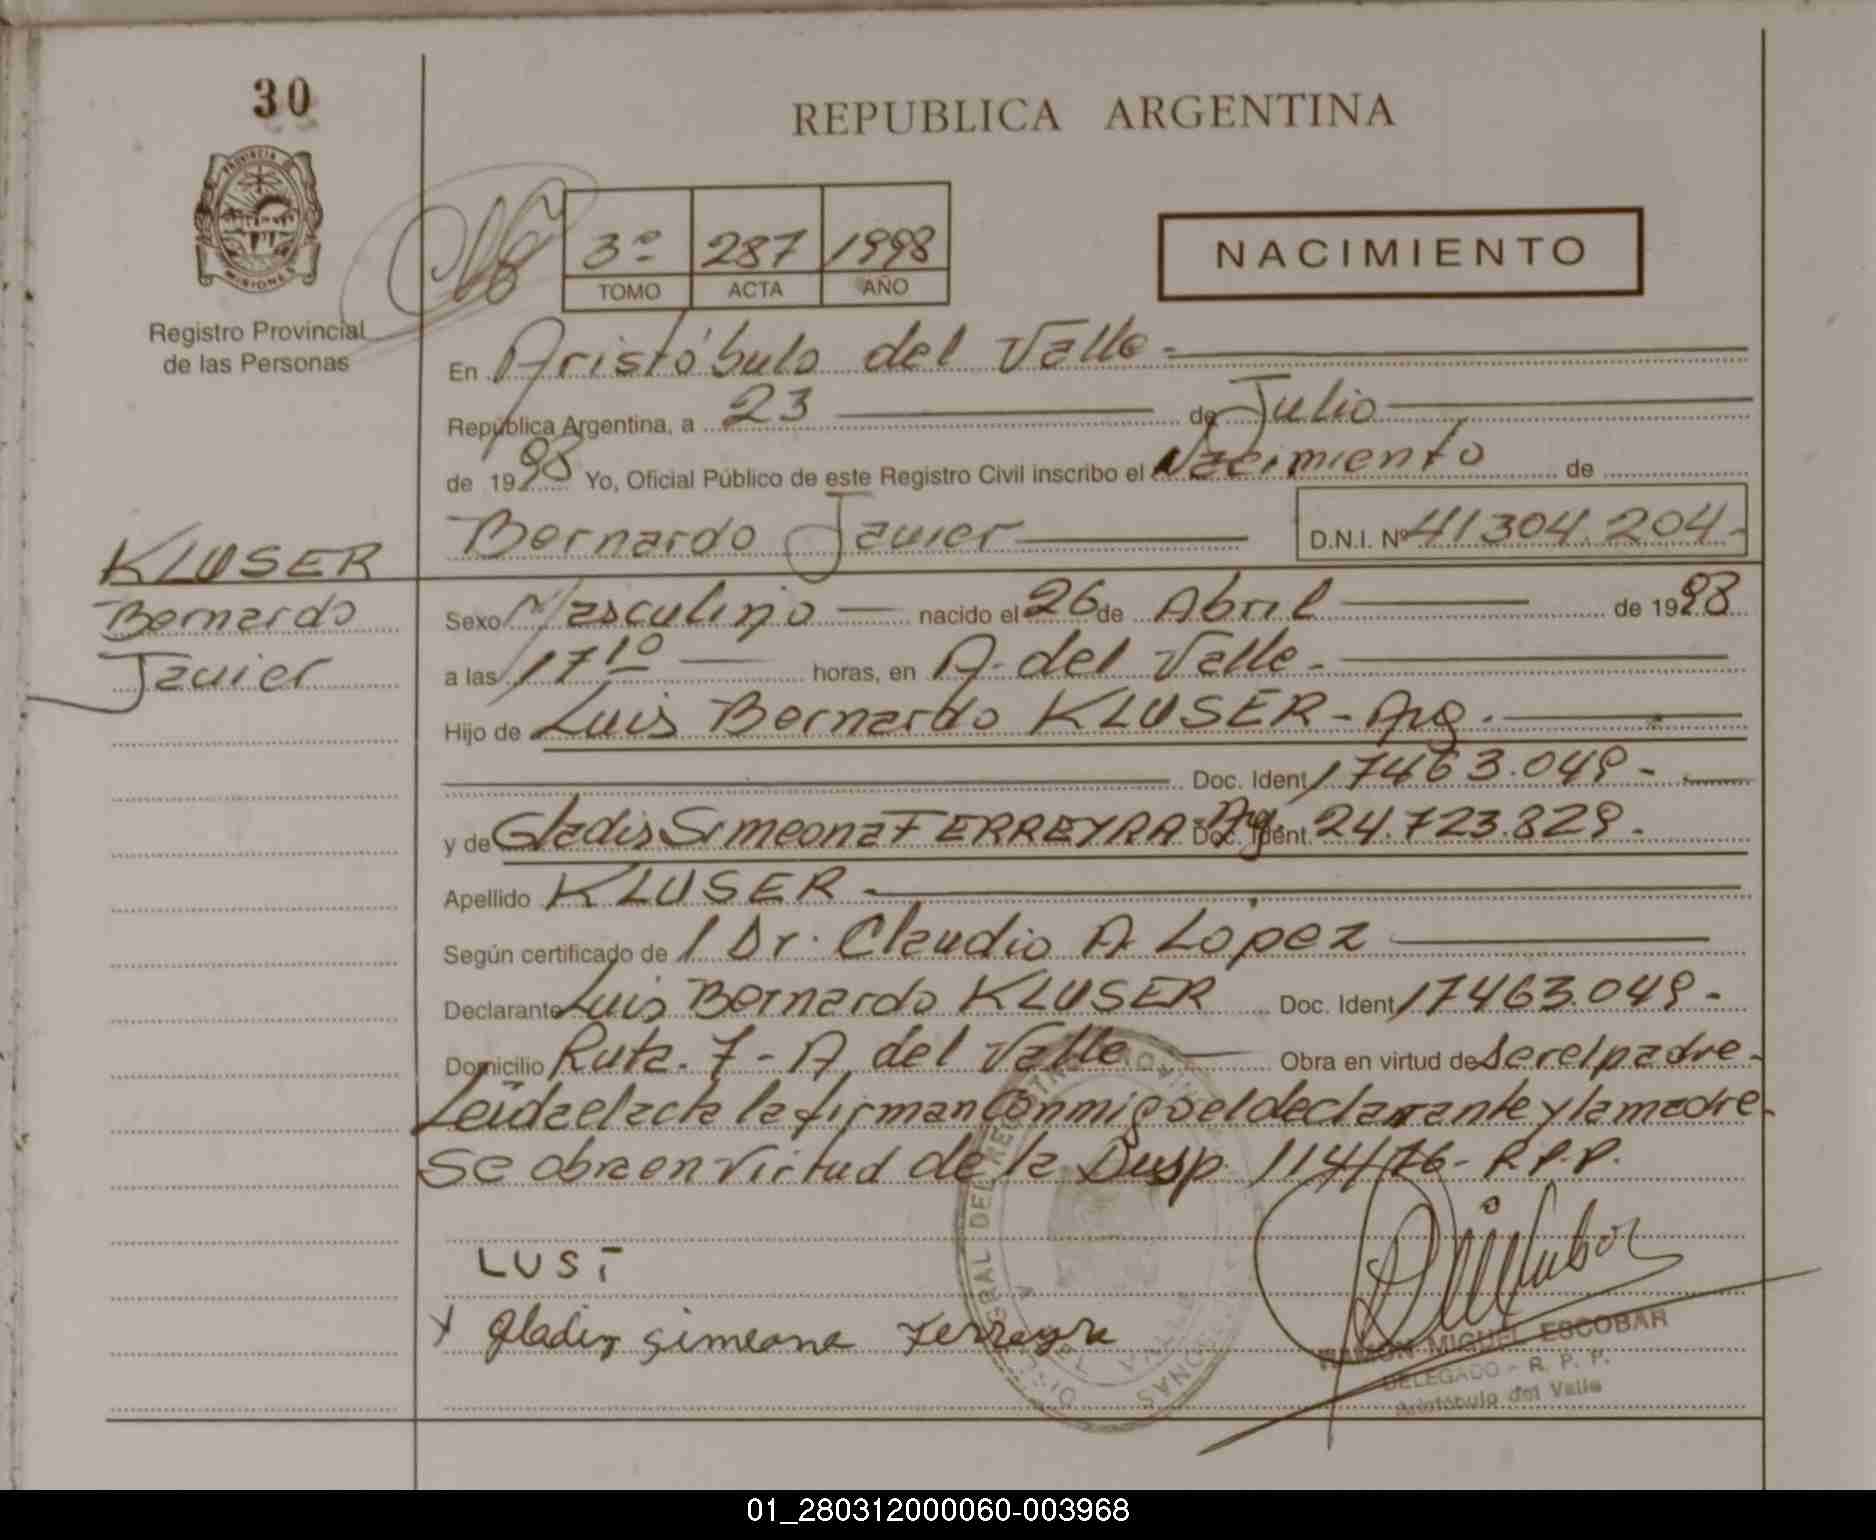 30
PROVINCIA DE
MISIONES
Registro Provincial
de las Personas
REPUBLICA ARGENTINA
3º 287 1998
TOMO ACTA AÑO
NACIMIENTO
En Aristóbulo del Valle-
República Argentina, a 23 de Julio
de 1998 Yo, Oficial Público de este Registro Civil inscribo el Nacimiento de
Bernardo Javier D.N.I. Nº 41304.204-
KLUSER
Bernardo
Javier
Sexo Masculino nacido el 26 de Abril de 1998
a las 17 10 horas, en A. del Valle-
Hijo de Luis Bernardo KLUSER-Arg.
Doc. Ident. 17463.049-
y de Gladis Simeona FERREYRA-Arg. Doc. Ident. 24.723.829.
Apellido KLUSER-
Según certificado de Dr. Claudio A. López
Declarante Luis Bernardo KLUSER Doc. Ident. 17463.049-
Domicilio Ruta. 7-A. del Valle Obra en virtud de ser el padre-
Leída el acta la firman conmigo el declarante y la madre-
Se obra en virtud de la Disp. 114/76- R.P.P.
LUSI
x Gladis Simeona Ferreyra
RAMON MIGUEL ESCOBAR
DELEGADO - R. P. P.
Aristóbulo del Valle
01_280312000060-003968